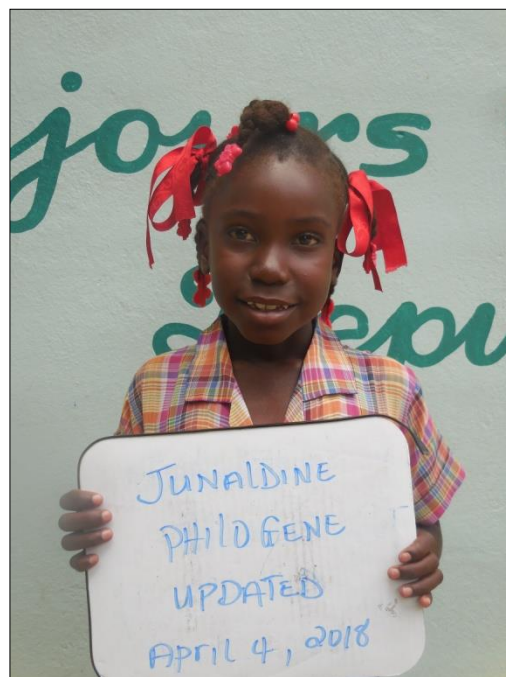 jours
depu
JUNALDINE
PHILOGENE
UPDATED
April 4, 2018